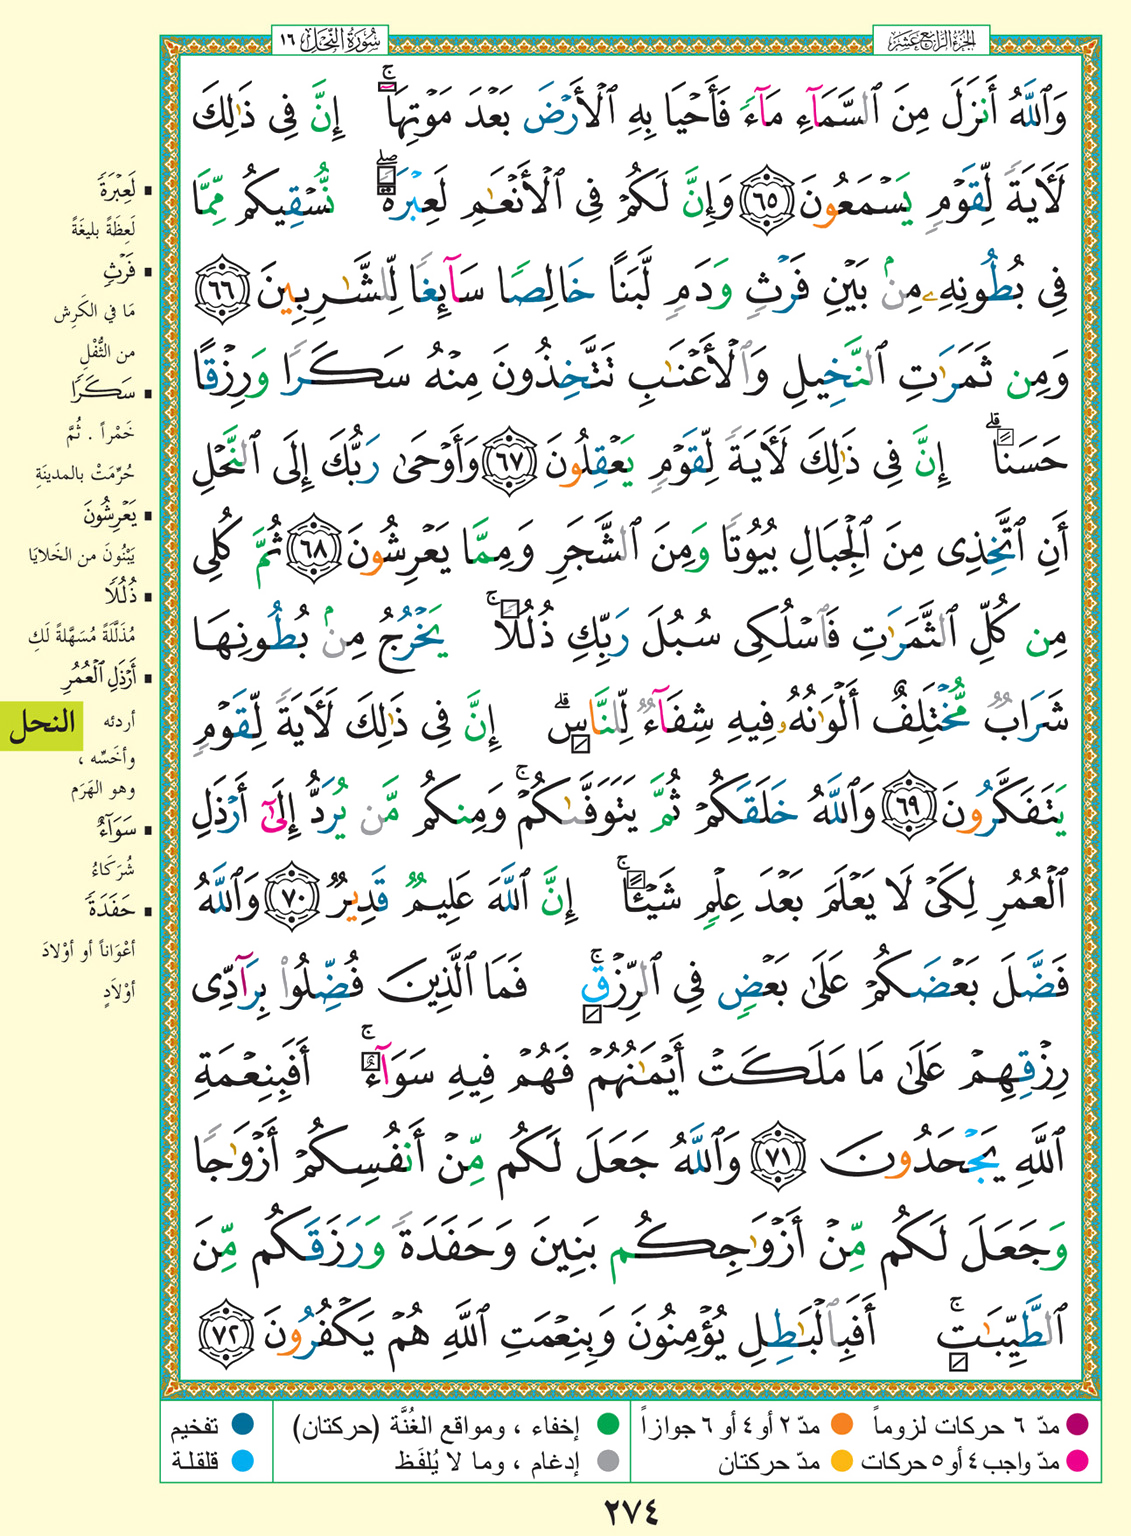 سُورَةُ النَّحْلِ ١٦
الجُزءُ الرَّابِعَ عَشَرَ
وَٱللَّهُ أَنزَلَ مِنَ ٱلسَّمَآءِ مَآءً فَأَحْيَا بِهِ ٱلْأَرْضَ بَعْدَ مَوْتِهَآ ۚ إِنَّ فِى ذَٰلِكَ
لَأَيَةً لِّقَوْمٍ يَسْمَعُونَ ٦٥ وَإِنَّ لَكُمْ فِى ٱلْأَنْعَٰمِ لَعِبْرَةً ۖ نُّسْقِيكُم مِّمَّا
فِى بُطُونِهِۦ مِنۢ بَيْنِ فَرْثٍ وَدَمٍ لَّبَنًا خَالِصًا سَآئِغًا لِّلشَّٰرِبِينَ ٦٦
وَمِن ثَمَرَٰتِ ٱلنَّخِيلِ وَٱلْأَعْنَٰبِ تَتَّخِذُونَ مِنْهُ سَكَرًا وَرِزْقًا
حَسَنًا ۗ إِنَّ فِى ذَٰلِكَ لَأَيَةً لِّقَوْمٍ يَعْقِلُونَ ٦٧ وَأَوْحَىٰ رَبُّكَ إِلَى ٱلنَّحْلِ
أَنِ ٱتَّخِذِى مِنَ ٱلْجِبَالِ بُيُوتًا وَمِنَ ٱلشَّجَرِ وَمِمَّا يَعْرِشُونَ ٦٨ ثُمَّ كُلِى
مِن كُلِّ ٱلثَّمَرَٰتِ فَٱسْلُكِى سُبُلَ رَبِّكِ ذُلُلًا ۚ يَخْرُجُ مِنۢ بُطُونِهَا
شَرَابٌ مُّخْتَلِفٌ أَلْوَٰنُهُۥ فِيهِ شِفَآءٌ لِّلنَّاسِ ۗ إِنَّ فِى ذَٰلِكَ لَأَيَةً لِّقَوْمٍ
يَتَفَكَّرُونَ ٦٩ وَٱللَّهُ خَلَقَكُمْ ثُمَّ يَتَوَفَّىٰكُمْ ۚ وَمِنكُم مَّن يُرَدُّ إِلَىٰٓ أَرْذَلِ
ٱلْعُمُرِ لِكَىْ لَا يَعْلَمَ بَعْدَ عِلْمٍ شَيْـًٔا ۚ إِنَّ ٱللَّهَ عَلِيمٌ قَدِيرٌ ٧٠ وَٱللَّهُ
فَضَّلَ بَعْضَكُمْ عَلَىٰ بَعْضٍ فِى ٱلرِّزْقِ ۚ فَمَا ٱلَّذِينَ فُضِّلُوا۟ بِرَآدِّى
رِزْقِهِمْ عَلَىٰ مَا مَلَكَتْ أَيْمَٰنُهُمْ فَهُمْ فِيهِ سَوَآءٌ ۚ أَفَبِنِعْمَةِ
ٱللَّهِ يَجْحَدُونَ ٧١ وَٱللَّهُ جَعَلَ لَكُم مِّنْ أَنفُسِكُمْ أَزْوَٰجًا
وَجَعَلَ لَكُم مِّنْ أَزْوَٰجِكُم بَنِينَ وَحَفَدَةً وَرَزَقَكُم مِّنَ
ٱلطَّيِّبَٰتِ ۚ أَفَبِٱلْبَٰطِلِ يُؤْمِنُونَ وَبِنِعْمَتِ ٱللَّهِ هُمْ يَكْفُرُونَ ٧٢
لَعِبْرَةً
لَعِظَةً بليغَةً
فَرْثٍ
مَا في الكَرِش
من الثُّفْلِ
سَكَرًا
خَمْراً . ثُمَّ
حُرِّمَتْ بالمدينَةِ
يَعْرِشُونَ
يَبْنُونَ من الخَلايَا
ذُلُلًا
مُذَلَّلَةً مُسَهَّلةً لَكِ
أَرْذَلِ ٱلْعُمُرِ
أردئه
وأخَسِّه ،
وهو الهَرَم
سَوَآءٌ
شُرَكَاءُ
حَفَدَةً
أعْوَاناً أو أوْلادَ
أوْلَادٍ
النحل
مدّ ٦ حركات لزوماً
مدّ ٢ أو ٤ أو ٦ جوازاً
إخفاء ، ومواقع الغُنَّة (حركتان)
تفخيم
مدّ واجب ٤ أو ٥ حركات
مدّ حركتان
إدغام ، وما لا يُلفَظ
قلقلة
٢٧٤